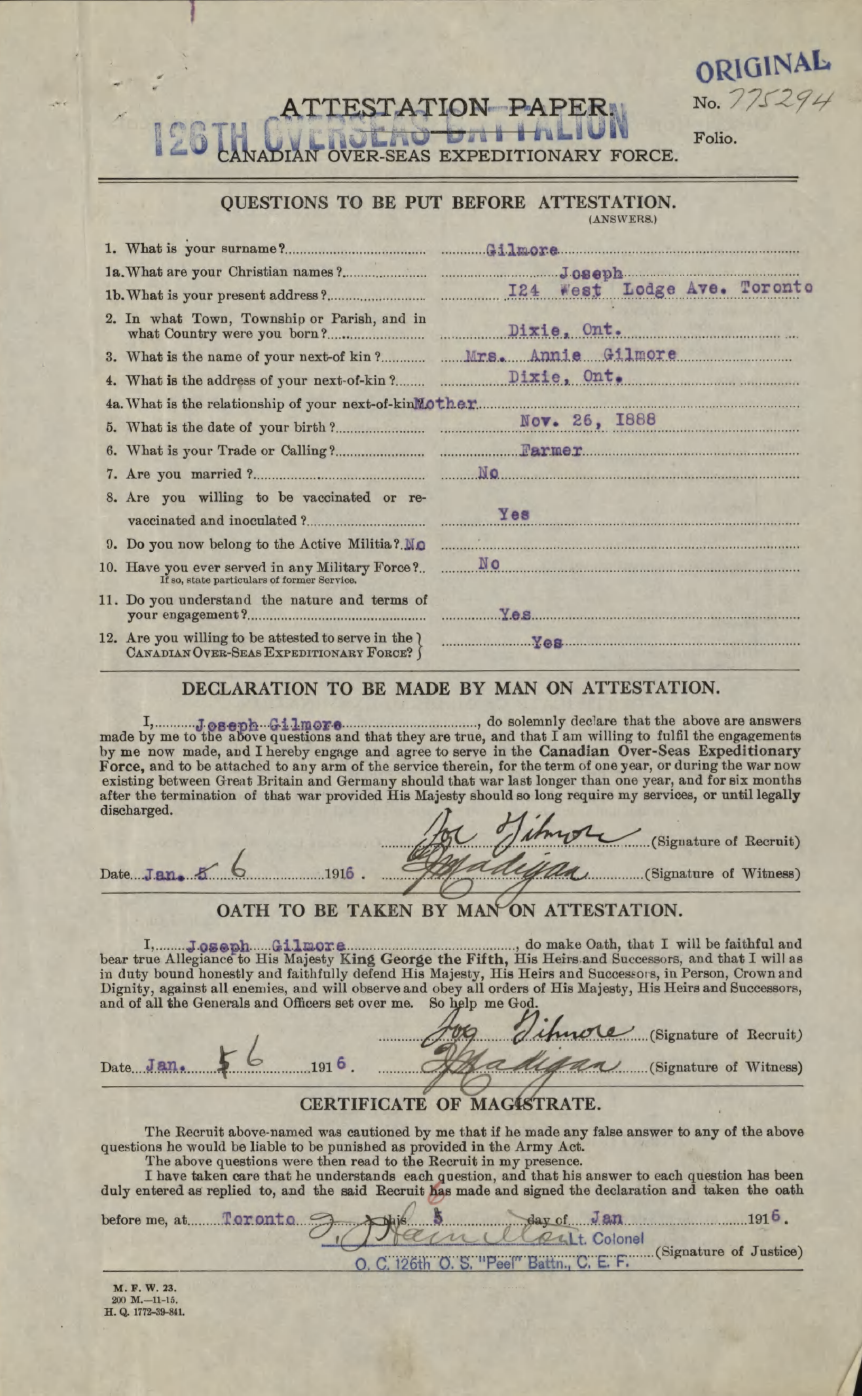 ORIGINAL
ATTESTATION PAPER. No. 775294
126TH OVERSEAS BATTALION Folio.
CANADIAN OVER-SEAS EXPEDITIONARY FORCE.
QUESTIONS TO BE PUT BEFORE ATTESTATION.
(ANSWERS.)
1. What is your surname? Gilmore
1a. What are your Christian names? Joseph
1b. What is your present address? I24 West Lodge Ave. Toronto
2. In what Town, Township or Parish, and in
what Country were you born? Dixie, Ont.
3. What is the name of your next-of kin? Mrs. Annie Gilmore
4. What is the address of your next-of-kin? Dixie, Ont.
4a. What is the relationship of your next-of-kin Mother
5. What is the date of your birth? Nov. 26, I888
6. What is your Trade or Calling? Farmer
7. Are you married? No
8. Are you willing to be vaccinated or re-
vaccinated and inoculated? Yes
9. Do you now belong to the Active Militia? No
10. Have you ever served in any Military Force? No
If so, state particulars of former Service.
11. Do you understand the nature and terms of
your engagement? Yes
12. Are you willing to be attested to serve in the
CANADIAN OVER-SEAS EXPEDITIONARY FORCE? Yes
DECLARATION TO BE MADE BY MAN ON ATTESTATION.
I, Joseph Gilmore, do solemnly declare that the above are answers
made by me to the above questions and that they are true, and that I am willing to fulfil the engagements
by me now made, and I hereby engage and agree to serve in the Canadian Over-Seas Expeditionary
Force, and to be attached to any arm of the service therein, for the term of one year, or during the war now
existing between Great Britain and Germany should that war last longer than one year, and for six months
after the termination of that war provided His Majesty should so long require my services, or until legally
discharged.
Joe Gilmore (Signature of Recruit)
Date Jan. 5 6 1916. Madigan (Signature of Witness)
OATH TO BE TAKEN BY MAN ON ATTESTATION.
I, Joseph Gilmore, do make Oath, that I will be faithful and
bear true Allegiance to His Majesty King George the Fifth, His Heirs and Successors, and that I will as
in duty bound honestly and faithfully defend His Majesty, His Heirs and Successors, in Person, Crown and
Dignity, against all enemies, and will observe and obey all orders of His Majesty, His Heirs and Successors,
and of all the Generals and Officers set over me. So help me God.
Joe Gilmore (Signature of Recruit)
Date Jan. 5 6 1916. Madigan (Signature of Witness)
CERTIFICATE OF MAGISTRATE.
The Recruit above-named was cautioned by me that if he made any false answer to any of the above
questions he would be liable to be punished as provided in the Army Act.
The above questions were then read to the Recruit in my presence.
I have taken care that he understands each question, and that his answer to each question has been
duly entered as replied to, and the said Recruit has made and signed the declaration and taken the oath
before me, at Toronto this 5 day of Jan 1916.
Hamilton Lt. Colonel
(Signature of Justice)
O. C. 126th O. S. "Peel" Battn., C. E. F.
M. F. W. 23.
200 M.—11-15.
H. Q. 1772-39-841.